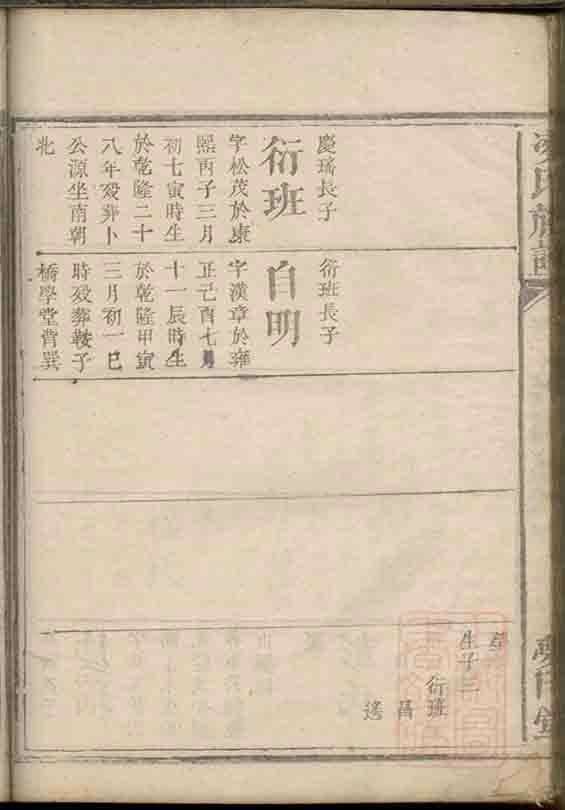 氏族譜
慶瑤長子
衍班
字松茂於康
熙丙子三月
初七寅時生
於乾隆二十
八年歿葬卜
公源坐南朝
北
衍班長子
自明
字漢章於雍
正己酉七月
十一辰時生
於乾隆甲寅
三月初一巳
時歿葬鞍子
橋學堂背巽
生子二
衍班
昌
遙